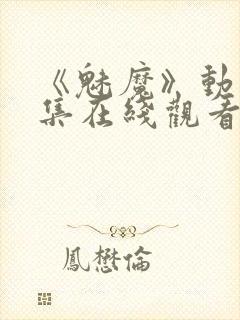 《魅魔》動
集在綫觀看
鳳懋倫